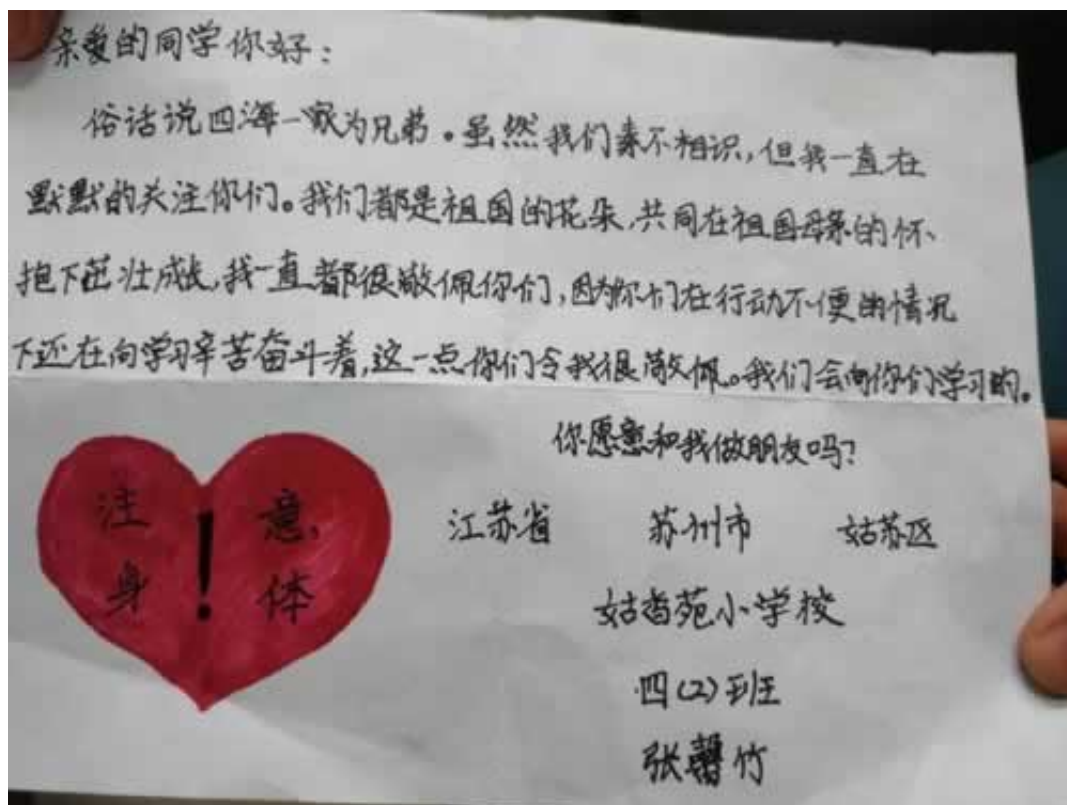 亲爱的同学你好：
俗话说四海一家为兄弟。虽然我们素不相识，但我一直在
默默的关注你们。我们都是祖国的花朵，共同在祖国母亲的怀
抱下茁壮成长，我一直都很敬佩你们，因为你们在行动不便的情况
下还在向学习辛苦奋斗着，这一点你们令我很敬佩。我们会向你们学习的。
你愿意和我做朋友吗？
注！意，
身体
江苏省 苏州市 姑苏区
姑香苑小学校
四(2)班
张馨竹